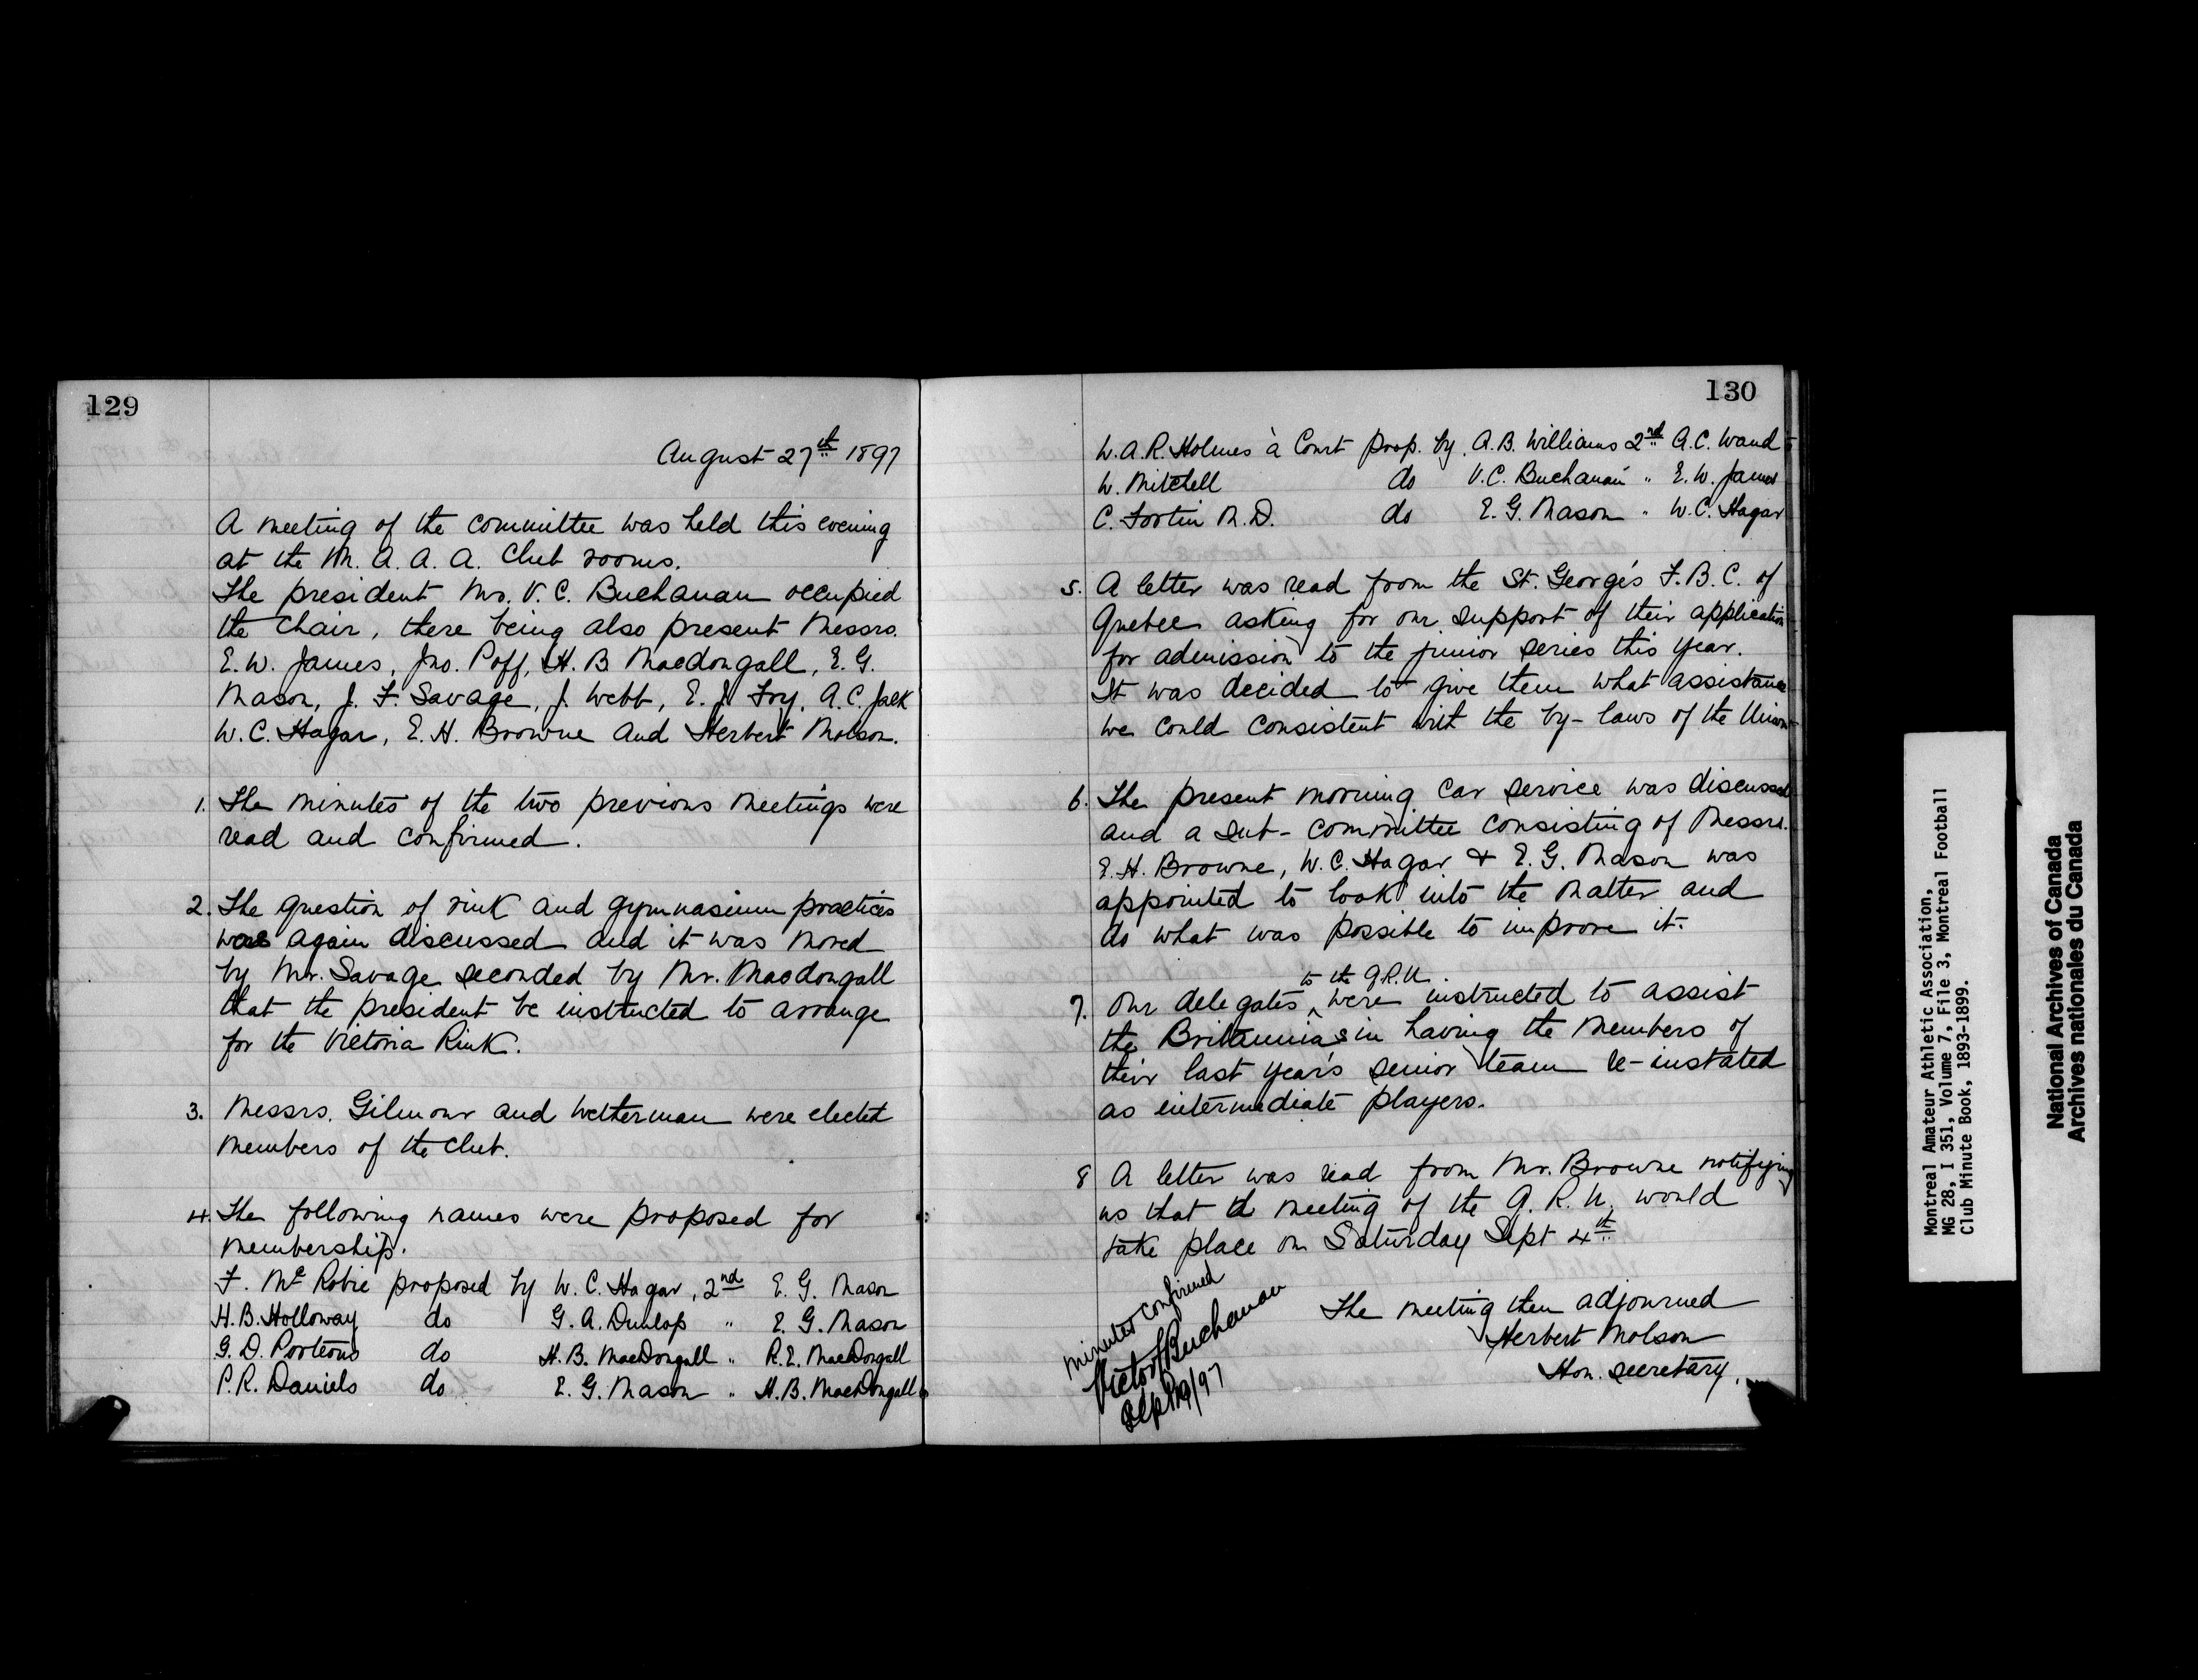 129
August 27th 1897
A meeting of the committee was held this evening
at the M. A. A. A. Club rooms.
The president Mr. V. C. Buchanan occupied
the chair, there being also present Messrs.
E. W. James, Jno. Poff, H. B Macdougall, E. G.
Mason, J. F. Savage, J. Webb, E. J. Fry, A. C. Jack
W. C. Hagar, E. H. Browne and Herbert Molson.
1. The minutes of the two previous meetings were
read and confirmed.
2. The question of rink and gymnasium practices
was again discussed and it was moved
by Mr. Savage seconded by Mr. Macdougall
that the president be instructed to arrange
for the Victoria Rink.
3. Messrs. Gilmour and Wetterman were elected
members of the club.
4. The following names were proposed for
membership.
F. McRobie proposed by W. C. Hagar, 2nd E. G. Mason
H. B. Holloway do G. A. Dunlop " E. G. Mason
G. D. Porteous do H. B. MacDougall " R. E. MacDougall
P. R. Daniels do E. G. Mason " H. B. MacDougall
130
W. A. R. Holmes à Court prop. by A. B. Williams 2nd A. C. Wand
W. Mitchell do V. C. Buchanan " E. W. James
C. Fortin M. D. do E. G. Mason " W. C. Hagar
5. A letter was read from the St. George's F. B. C. of
Quebec asking for our support of their application
for admission to the junior series this year.
It was decided to give them what assistance
we could consistent with the by-laws of the Union
6. The present morning car service was discussed
and a sub-committee consisting of Messrs.
E. H. Browne, W. C. Hagar & E. G. Mason was
appointed to look into the matter and
do what was possible to improve it.
7. Our delegates to the Q.R.U. were instructed to assist
the Britannias in having the members of
their last year's senior team re-instated
as intermediate players.
8 A letter was read from Mr. Browne notifying
us that a meeting of the Q. R. U. would
take place on Saturday Sept 4th.
The meeting then adjourned
Herbert Molson
Hon. Secretary.
Minutes confirmed
Victor Buchanan
Sept /97
Montreal Amateur Athletic Association,
MG 28, I 351, Volume 7, File 3, Montreal Football
Club Minute Book, 1893-1899.
National Archives of Canada
Archives nationales du Canada